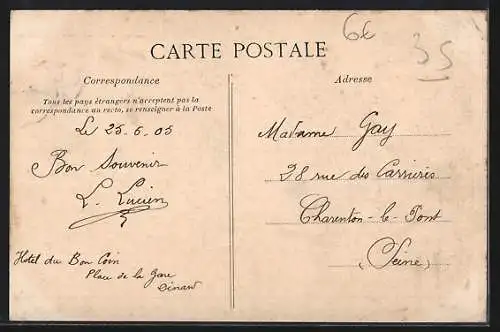 6€
35
CARTE POSTALE
Correspondance
Tous les pays étrangers n'acceptent pas la
correspondance au recto, se renseigner à la Poste
Le 25-6-05
Bon Souvenir
L. Lucien
Hotel du Bon Coin
Place de la Gare
Dinard
Adresse
Madame Gay
28 rue des Carrières
Charenton-le-Pont
(Seine)